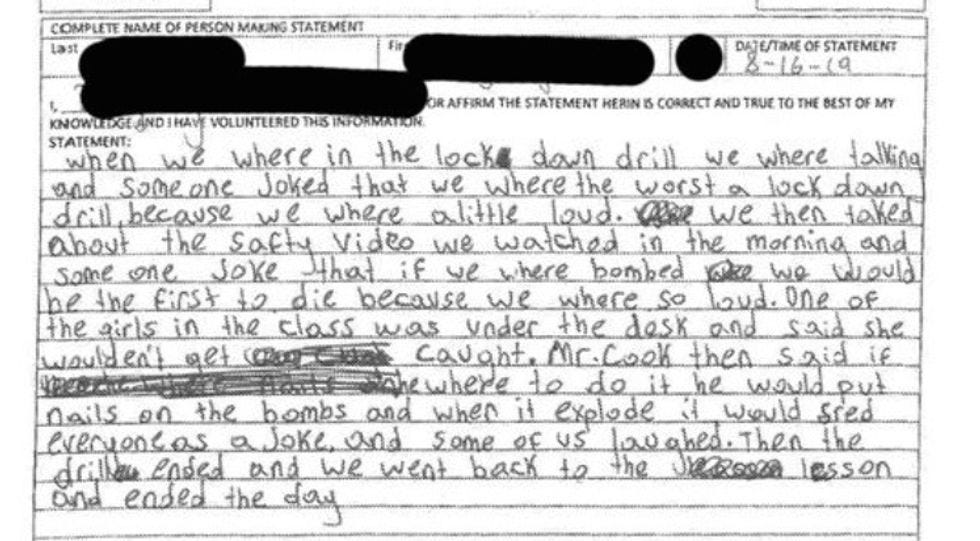 COMPLETE NAME OF PERSON MAKING STATEMENT
Last
DATE/TIME OF STATEMENT
8-16-19
I, OR AFFIRM THE STATEMENT HEREIN IS CORRECT AND TRUE TO THE BEST OF MY
KNOWLEDGE AND I HAVE VOLUNTEERED THIS INFORMATION.
STATEMENT:
when we where in the lock down drill we where talking
and some one Joked that we where the worst a lock down
drill, because we where alittle loud. we then talked
about the safty Video we watched in the morning and
some one Joke that if we where bombed we would
be the first to die because we where so loud. One of
the girls in the class was under the desk and said she
woulden't get caught. Mr. Cook then said if
he where to do it he would put
nails on the bombs and when it explode it would fred
everyone as a Joke, and some of us laughed. Then the
drill ended and we went back to the lesson
and ended the day